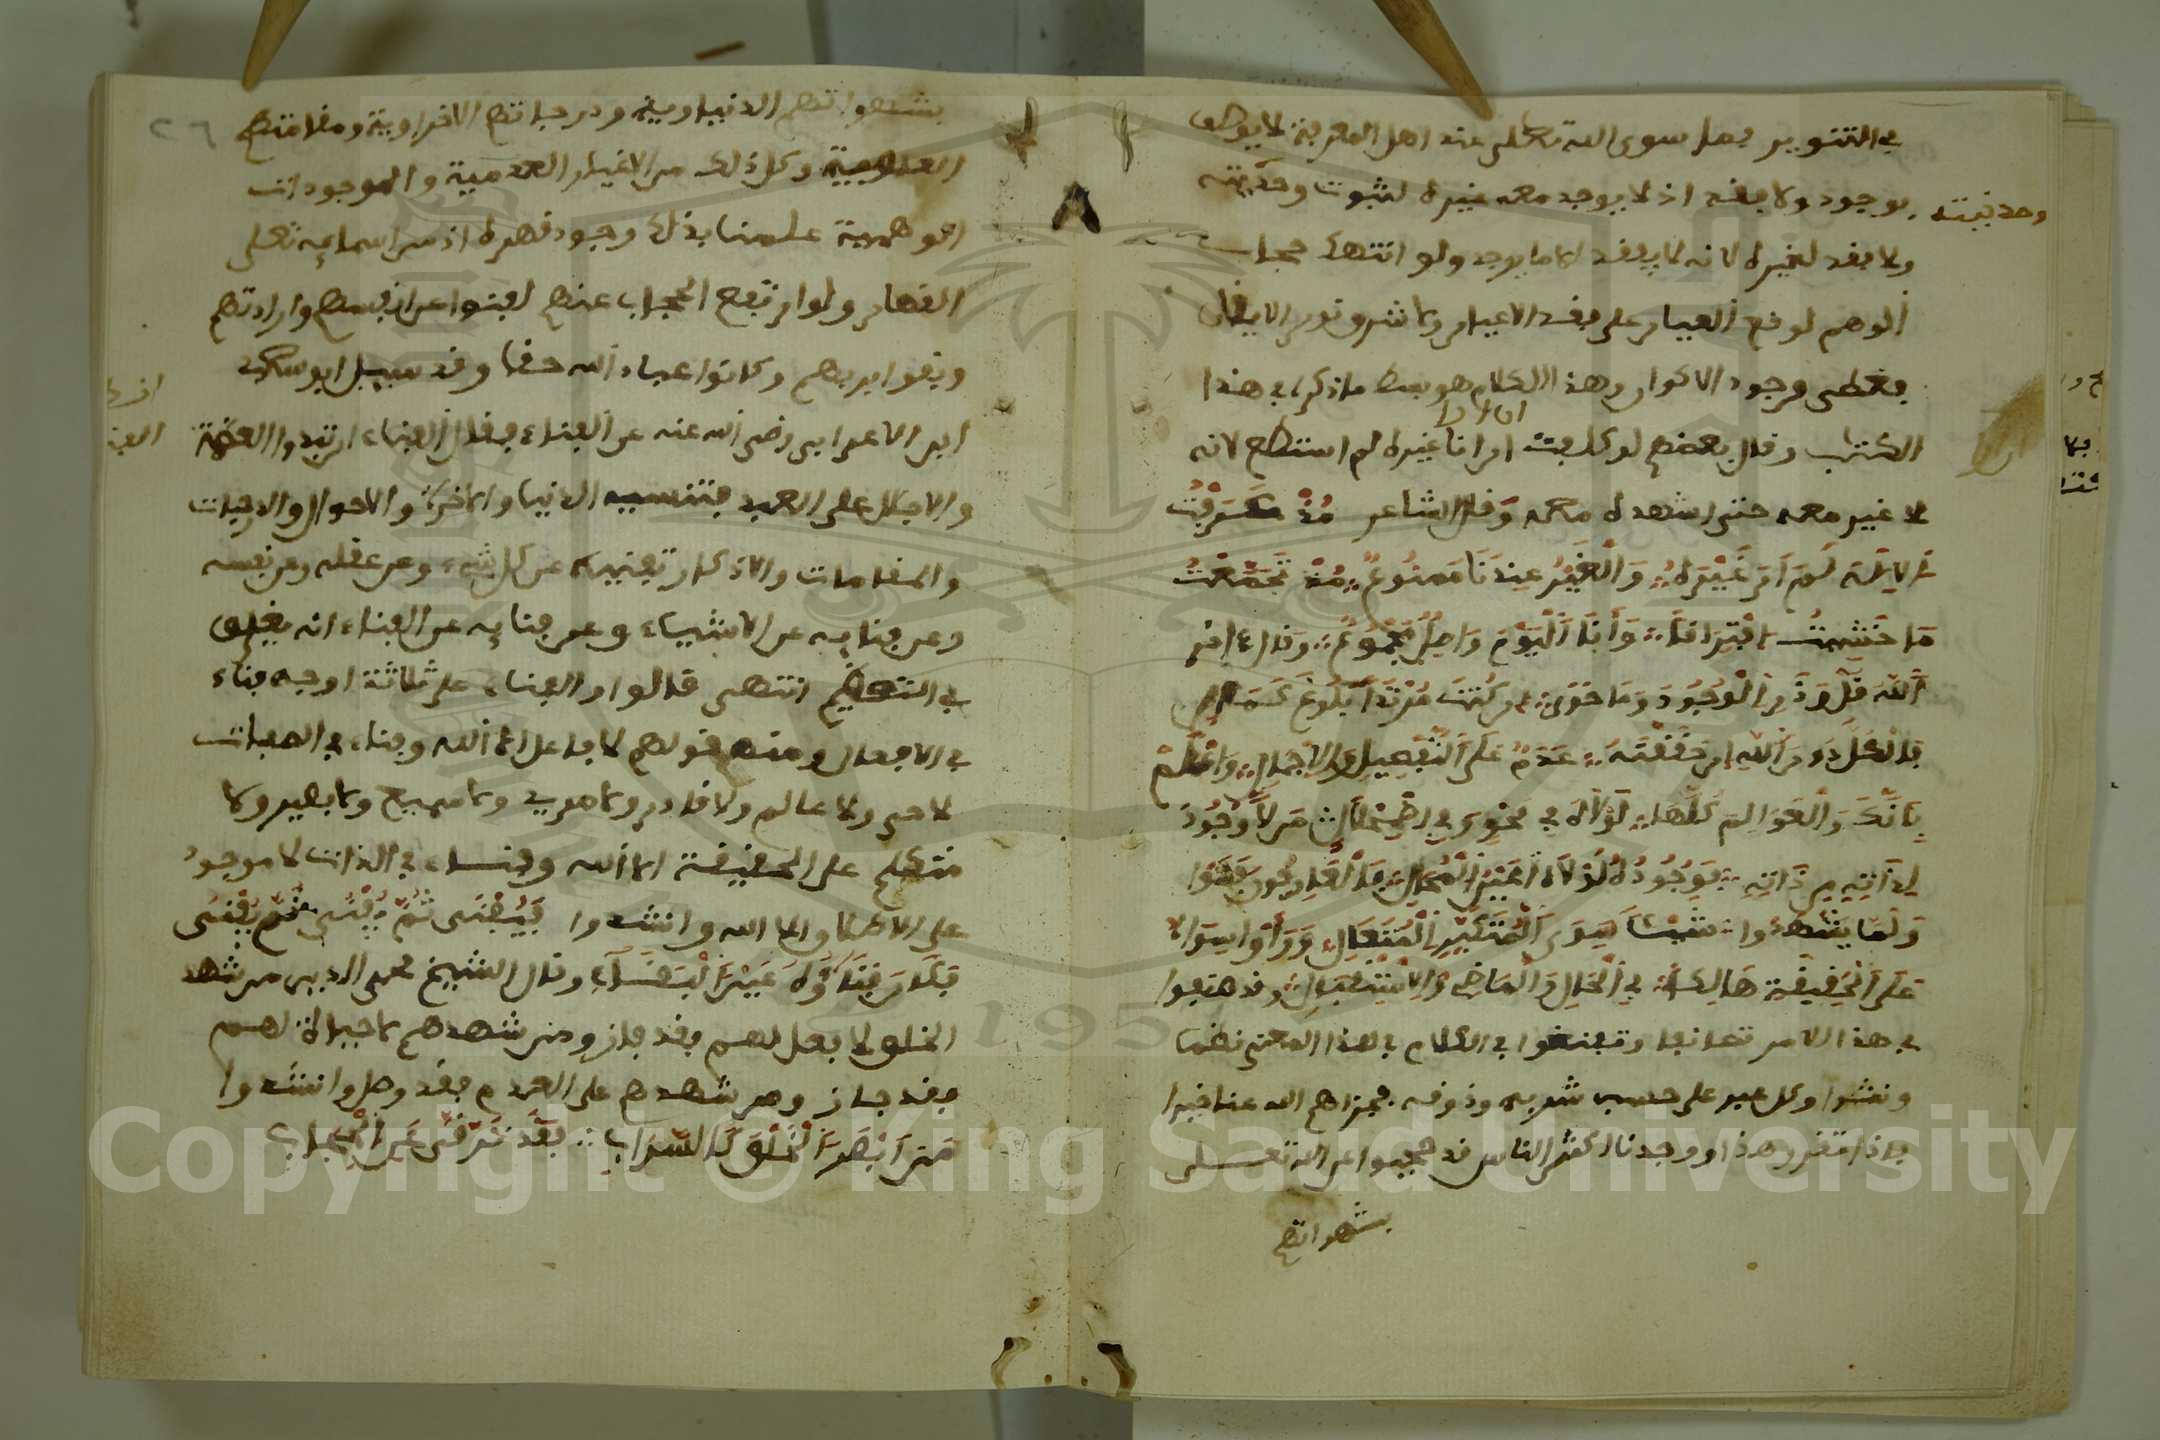 في التنوير فما سوى الله تعلى عند اهل المعرفة لا يوصف
بوجود ولا بفقد اذ لا يوجد معه غيره لثبوت وحديته
وحدنيته
ولا بفقد لغيره لانه لا يفقد الا ما يوجد ولو انتهك حجاب
الوهم لوقع العيان على فقد الاعيان ولاشرق نور الايقان
فغطى وجود الاكوان وهذا الكلام هو بسط ما ذكره في هذا
ان ارا
الكتاب وقال بعضهم لو كلفت ان ارا غيره لم استطع لانه
لا غير معه حتى اشهده معه وقال الشاعر مُذْ عَرَفْتُ
الإلَهَ لَمْ أَرَ غَيْرَهُ وَالْغَيْرُ عِنْدَنَا مَمْنُوعُ مُذْ تَجَمَّعْتُ
مَا خَشِيتُ افْتِرَاقًا وَأَنَا الْيَوْمَ وَاصِلٌ مَجْمُوعُ وقال اخر
اللَّهَ قُلْ وَذَرِ الْوُجُودَ وَمَا حَوَى إن كُنْتَ مُرْتَادًا بُلُوغَ كَمَالِ
فَالْكُلُّ دُونَ اللهِ إن حَقَّقْتَهُ عَدَمٌ عَلَى التَّفْصِيلِ وَالإجْمَالِ وَاعْلَمْ
بِأَنَّكَ وَالْعَوَالِمَ كُلَّهَا لَوْلاهُ فِي مَحْوٍ وَفِي اضْمِحْلالِ مَن لا وُجُودَ
لِذَاتِهِ مِن ذَاتِهِ فَوُجُودُهُ لَوْلاهُ عَيْنُ الْمُحَالِ فَالْعَارِفُونَ فَنَوْا
وَلَمَّا يَشْهَدُوا شَيْئًا سِوَى الْمُتَكَبِّرِ الْمُتَعَالِ وَرَأَوْا سِوَاهُ
عَلَى الْحَقِيقَةِ هَالِكًا فِي الْحَالِ وَالْمَاضِي وَالاِسْتِقْبَالِ وقد هتفوا
في هذا الامر تهاتفا وتفننوا في الكلام في هذا المعنى نظما
ونثرا وكل عبر على حسب شربه وذوقه فجزاهم الله عنا خيرا
فاذا تقرر هذا ووجدنا اكثر الناس قد حجبوا عن الله تعلى
بشهواتهم
٢٦
بشهواتهم الدنياوية ودرجاتهم الاخراوية ومقامتهم
العلوية وكل ذلك من الاغيار العدمية والموجودات
الوهمية علمنا بذلك وجود قهره اذ من اسمايه تعلى
القهار ولو ارتفع الحجاب عنهم لفنوا عن انفسهم وارادتهم
وبقوا بربهم وكانوا عباد الله حقا وقد سيل ابو سعيد
ابن الاعرابي رضي الله عنه عن الفناء فقال الفناء ان تبدوا العظمة
والاجلال على العبد فتنسيه الدنيا والاخرة والاحوال والدرجات
والمقامات والاذكار تفنيه عن كل شيء وعن عقله وعن نفسه
وعن فنايه عن الاشياء وعن فنايه عن الفناء انه يغرق
في التعظيم انتهى قالوا والفناء على ثلاثة اوجه فناء
في الافعال ومنه قولهم لا فاعل الا الله وفناء في الصفات
لا حي ولا عالم ولا قادر ولا مريد ولا سميع ولا بصير ولا
متكلم على الحقيقة الا الله وفناء في الذات لا موجود
على الاطلاق الا الله وانشدوا فَيَفْنَى ثُمَّ يَفْنَى ثُمَّ يَفْنَى
فَكَانَ فَنَاؤُهُ عَيْنَ الْبَقَاءِ وقال الشيخ محيي الدين من شهد
الخلق لا فعل لهم فقد فاز ومن شهدهم لا حياة لهم
فقد جاز ومن شهدهم على العدم فقد وصل وانشدوا
مَن أَبْصَرَ الْخَلْقَ كَالسَّرَابِ فَقَدْ تَرَقَّى عَنِ الْحِجَابِ
Copyright © King Saud University